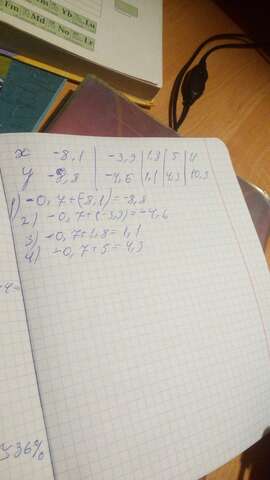 Fm Md No Lr
Yb Lu
x -8,1 | -3,9 | 1,8 | 5 | 11
y -8,8 | -4,6 | 1,1 | 4,3 | 10,3
1) -0,7+(-8,1)=-8,8
2) -0,7+(-3,9)=-4,6
3) -0,7+1,8=1,1
4) -0,7+5=4,3
36%